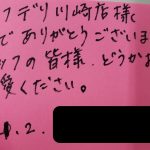 フデリ川崎店様
でありがとうございま
ッフの皆様、どうかお
覧ください。
2.